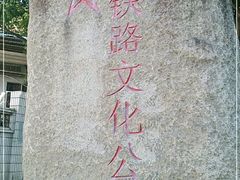 铁路文化公